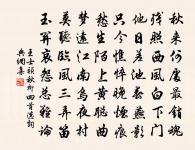 秋來何處最銷魂
殘照西風白下門
他日差池春燕影
只今憔悴晚煙痕
愁生陌上黃驄曲
夢遠江南烏夜村
莫聽臨風三弄笛
玉關哀怨總難論
王士禎秋柳四首